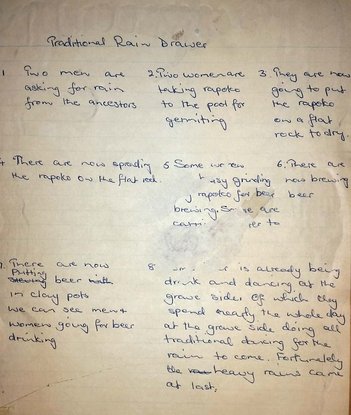 Traditional Rain Drawer
1 Two men are
asking for rain
from the ancestors
2. Two women are
taking rapoko
to the pool for
germiting
3. They are now
going to put
the rapoko
on a flat
rock to dry.
4 There are now spreading
the rapoko on the flat rock.
5 Some
busy grinding
rapoko for beer
brewing. are
to
6. There are
now brewing
beer
7. There are now
putting
beer
in clay pots
we can see men &
women going for beer
drinking
8 is already being
drink and dancing at the
grave sides of which they
spend nearly the whole day
at the grave side doing all
traditional dancing for the
rain to come. Fortunately
the heavy rains came
at last,